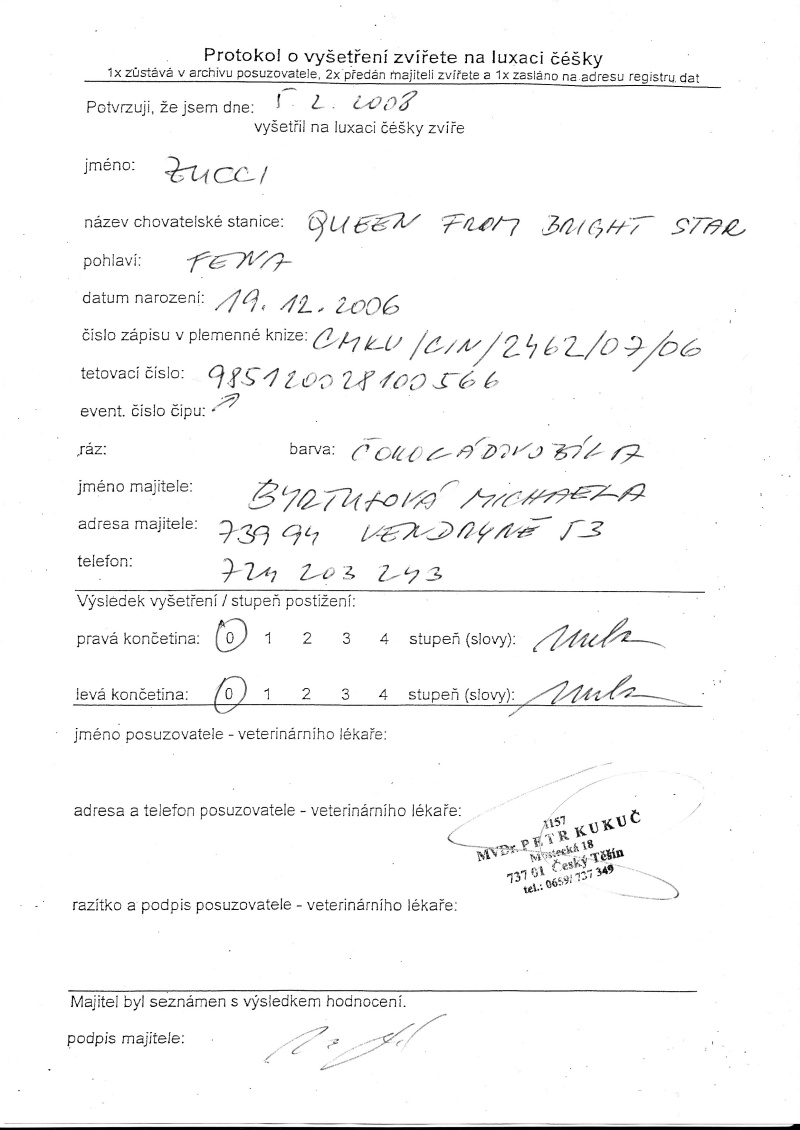 Protokol o vyšetření zvířete na luxaci čéšky
1x zůstává v archivu posuzovatele, 2x předán majiteli zvířete a 1x zasláno na adresu registru dat
Potvrzuji, že jsem dne: 5. 2. 2008
vyšetřil na luxaci čéšky zvíře
jméno: ZUCCI
název chovatelské stanice: QUEEN FROM BRIGHT STAR
pohlaví: FENA
datum narození: 19. 12. 2006
číslo zápisu v plemenné knize: CMKU/CIN/2462/07/06
tetovací číslo: 985120028100566
event. číslo čipu:
ráz: barva: ČOKOLÁDOVOBÍLA
jméno majitele: BYRTUSOVÁ MICHAELA
adresa majitele: 739 94 VENDRYNĚ 53
telefon: 724 203 243
Výsledek vyšetření / stupeň postižení:
pravá končetina: 0 1 2 3 4 stupeň (slovy): nula
levá končetina: 0 1 2 3 4 stupeň (slovy): nula
jméno posuzovatele - veterinárního lékaře:
adresa a telefon posuzovatele - veterinárního lékaře:
1157
MVDr. PETR KUKUČ
Mostecká 18
737 01 Český Těšín
tel.: 0659/ 737 349
razítko a podpis posuzovatele - veterinárního lékaře:
Majitel byl seznámen s výsledkem hodnocení.
podpis majitele: